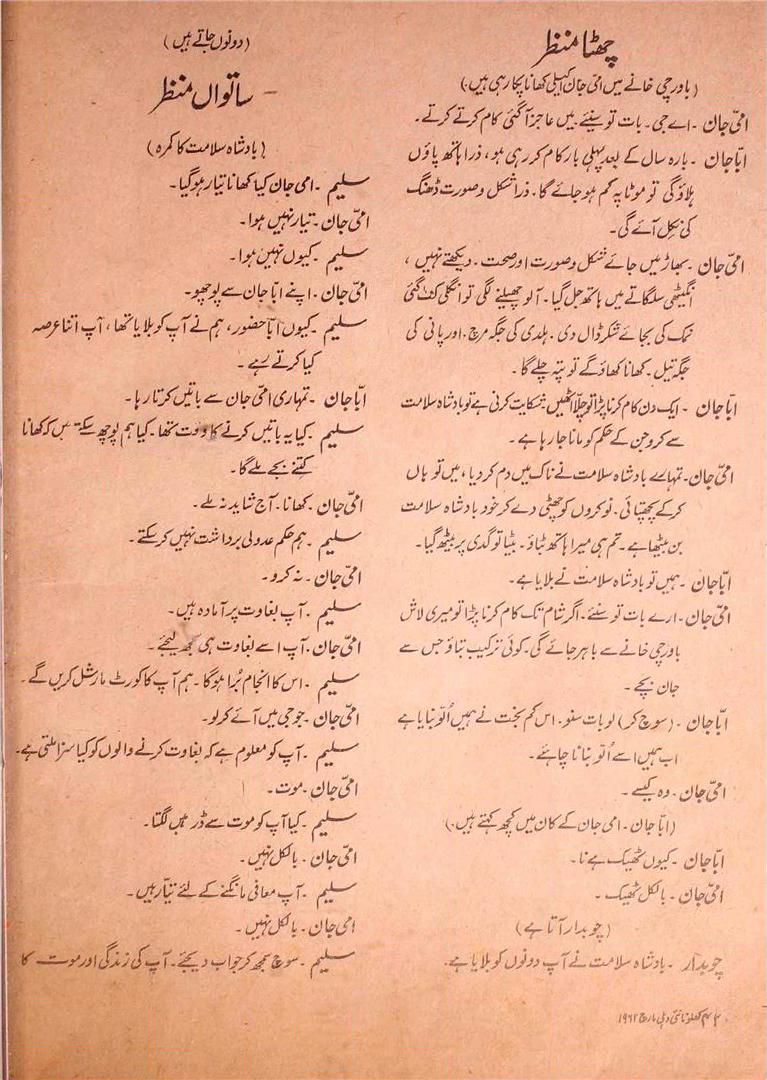 چھٹا منظر
(باورچی خانے میں امّی جان اکیلی کھانا پکا رہی ہیں.)
امّی جان ۔ اے جی۔ بات تو سنیئے میں عاجز آگئی کام کرتے کرتے۔
ابّا جان ۔ بارہ سال کے بعد پہلی بار کام کر رہی ہو، ذرا ہاتھ پاؤں
ہلاؤ گی تو موٹاپہ کم ہو جائے گا۔ ذرا شکل و صورت ڈھنگ
کی نکل آئے گی۔
امّی جان ۔ بھاڑ میں جائے شکل و صورت اور صحت ۔ دیکھتے نہیں ،
انگیٹھی سلگاتے میں ہاتھ جل گیا۔ آلو چھیلنے لگی تو انگلی کٹ گئی
نمک کی بجائے شکر ڈال دی ۔ ہلدی کی جگہ مرچ۔ اور پانی کی
جگہ تیل۔ کھانا کھاؤ گے تو پتہ چلے گا۔
ابّا جان ۔ ایک دن کام کرنا پڑا تو چلّا اٹھیں۔ شکایت کرنی ہے تو بادشاہ سلامت
سے کرو جن کے حکم کو مانا جا رہا ہے ۔
امّی جان۔ تمہارے بادشاہ سلامت نے ناک میں دم کر دیا ، میں تو ہاں
کر کے پچھتائی ۔ نوکروں کو چھٹی دے کر خود بادشاہ سلامت
بن بیٹھا ہے ۔ تم ہی میرا ہاتھ بٹاؤ ۔ بیٹا تو گدی پر بیٹھ گیا۔
ابّا جان ۔ ہمیں تو بادشاہ سلامت نے بلایا ہے۔
امّی جان۔ ارے بات تو سنئے۔ اگر شام تک کام کرنا پڑا تو میری لاش
باورچی خانے سے باہر جائے گی۔ کوئی ترکیب بتاؤ جس سے
جان بچے ۔
ابّا جان ۔ (سوچ کر) لو بات سنو۔ اس کم بخت نے ہمیں اُلّو بنایا ہے
اب ہمیں اسے اُلّو بنانا چاہئے۔
امّی جان ۔ وہ کیسے ۔
(ابّا جان ۔ امی جان کے کان میں کچھ کہتے ہیں.)
ابّا جان ۔ کیوں ٹھیک ہے نا۔
امّی جان ۔ بالکل ٹھیک ۔
(چوبدار آتا ہے)
چوبدار ۔ بادشاہ سلامت نے آپ دونوں کو بلایا ہے۔
(دونوں جاتے ہیں)
ساتواں منظر
(بادشاہ سلامت کا کمرہ)
سلیم ۔ امی جان کیا کھانا تیار ہو گیا۔
امّی جان ۔ تیار نہیں ہوا۔
سلیم ۔ کیوں نہیں ہوا۔
امّی جان ۔ اپنے ابا جان سے پوچھو۔
سلیم ۔ کیوں ابّا حضور، ہم نے آپ کو بلایا تھا، آپ اتنا عرصہ
کیا کرتے رہے ۔
ابّا جان ۔ تمہاری امّی جان سے باتیں کرتا رہا۔
سلیم ۔ کیا یہ باتیں کرنے کا وقت تھا۔ کیا ہم پوچھ سکتے ہیں کہ کھانا
کتنے بجے ملے گا۔
امّی جان ۔ کھانا۔ آج شاید نہ ملے ۔
سلیم ۔ ہم حکم عدولی برداشت نہیں کر سکتے ۔
امّی جان ۔ نہ کرو ۔
سلیم ۔ آپ بغاوت پر آمادہ ہیں ۔
امّی جان ۔ آپ اسے بغاوت ہی سمجھ لیجئے ۔
سلیم ۔ اس کا انجام بُرا ہوگا ۔ ہم آپ کا کورٹ مارشل کریں گے ۔
امّی جان ۔ جو جی میں آئے کر لو ۔
سلیم ۔ آپ کو معلوم ہے کہ بغاوت کرنے والوں کو کیا سزا ملتی ہے۔
امّی جان ۔ موت ۔
سلیم ۔ کیا آپ کو موت سے ڈر نہیں لگتا۔
امّی جان ۔ بالکل نہیں ۔
سلیم ۔ آپ معافی مانگنے کے لئے تیار ہیں ۔
امی جان ۔ بالکل نہیں ۔
سلیم ۔ سوچ سمجھ کر جواب دیجئے ۔ آپ کی زندگی اور موت کا
کھلونا نئی دہلی مارچ ۱۹۶۲